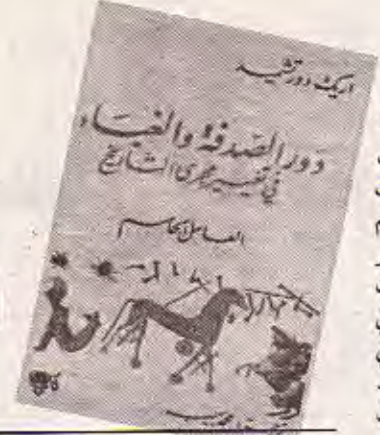 اريك دورتشيد
دور الصدفة والغباء
في تغيير مجرى التاريخ
العامل الحاسم